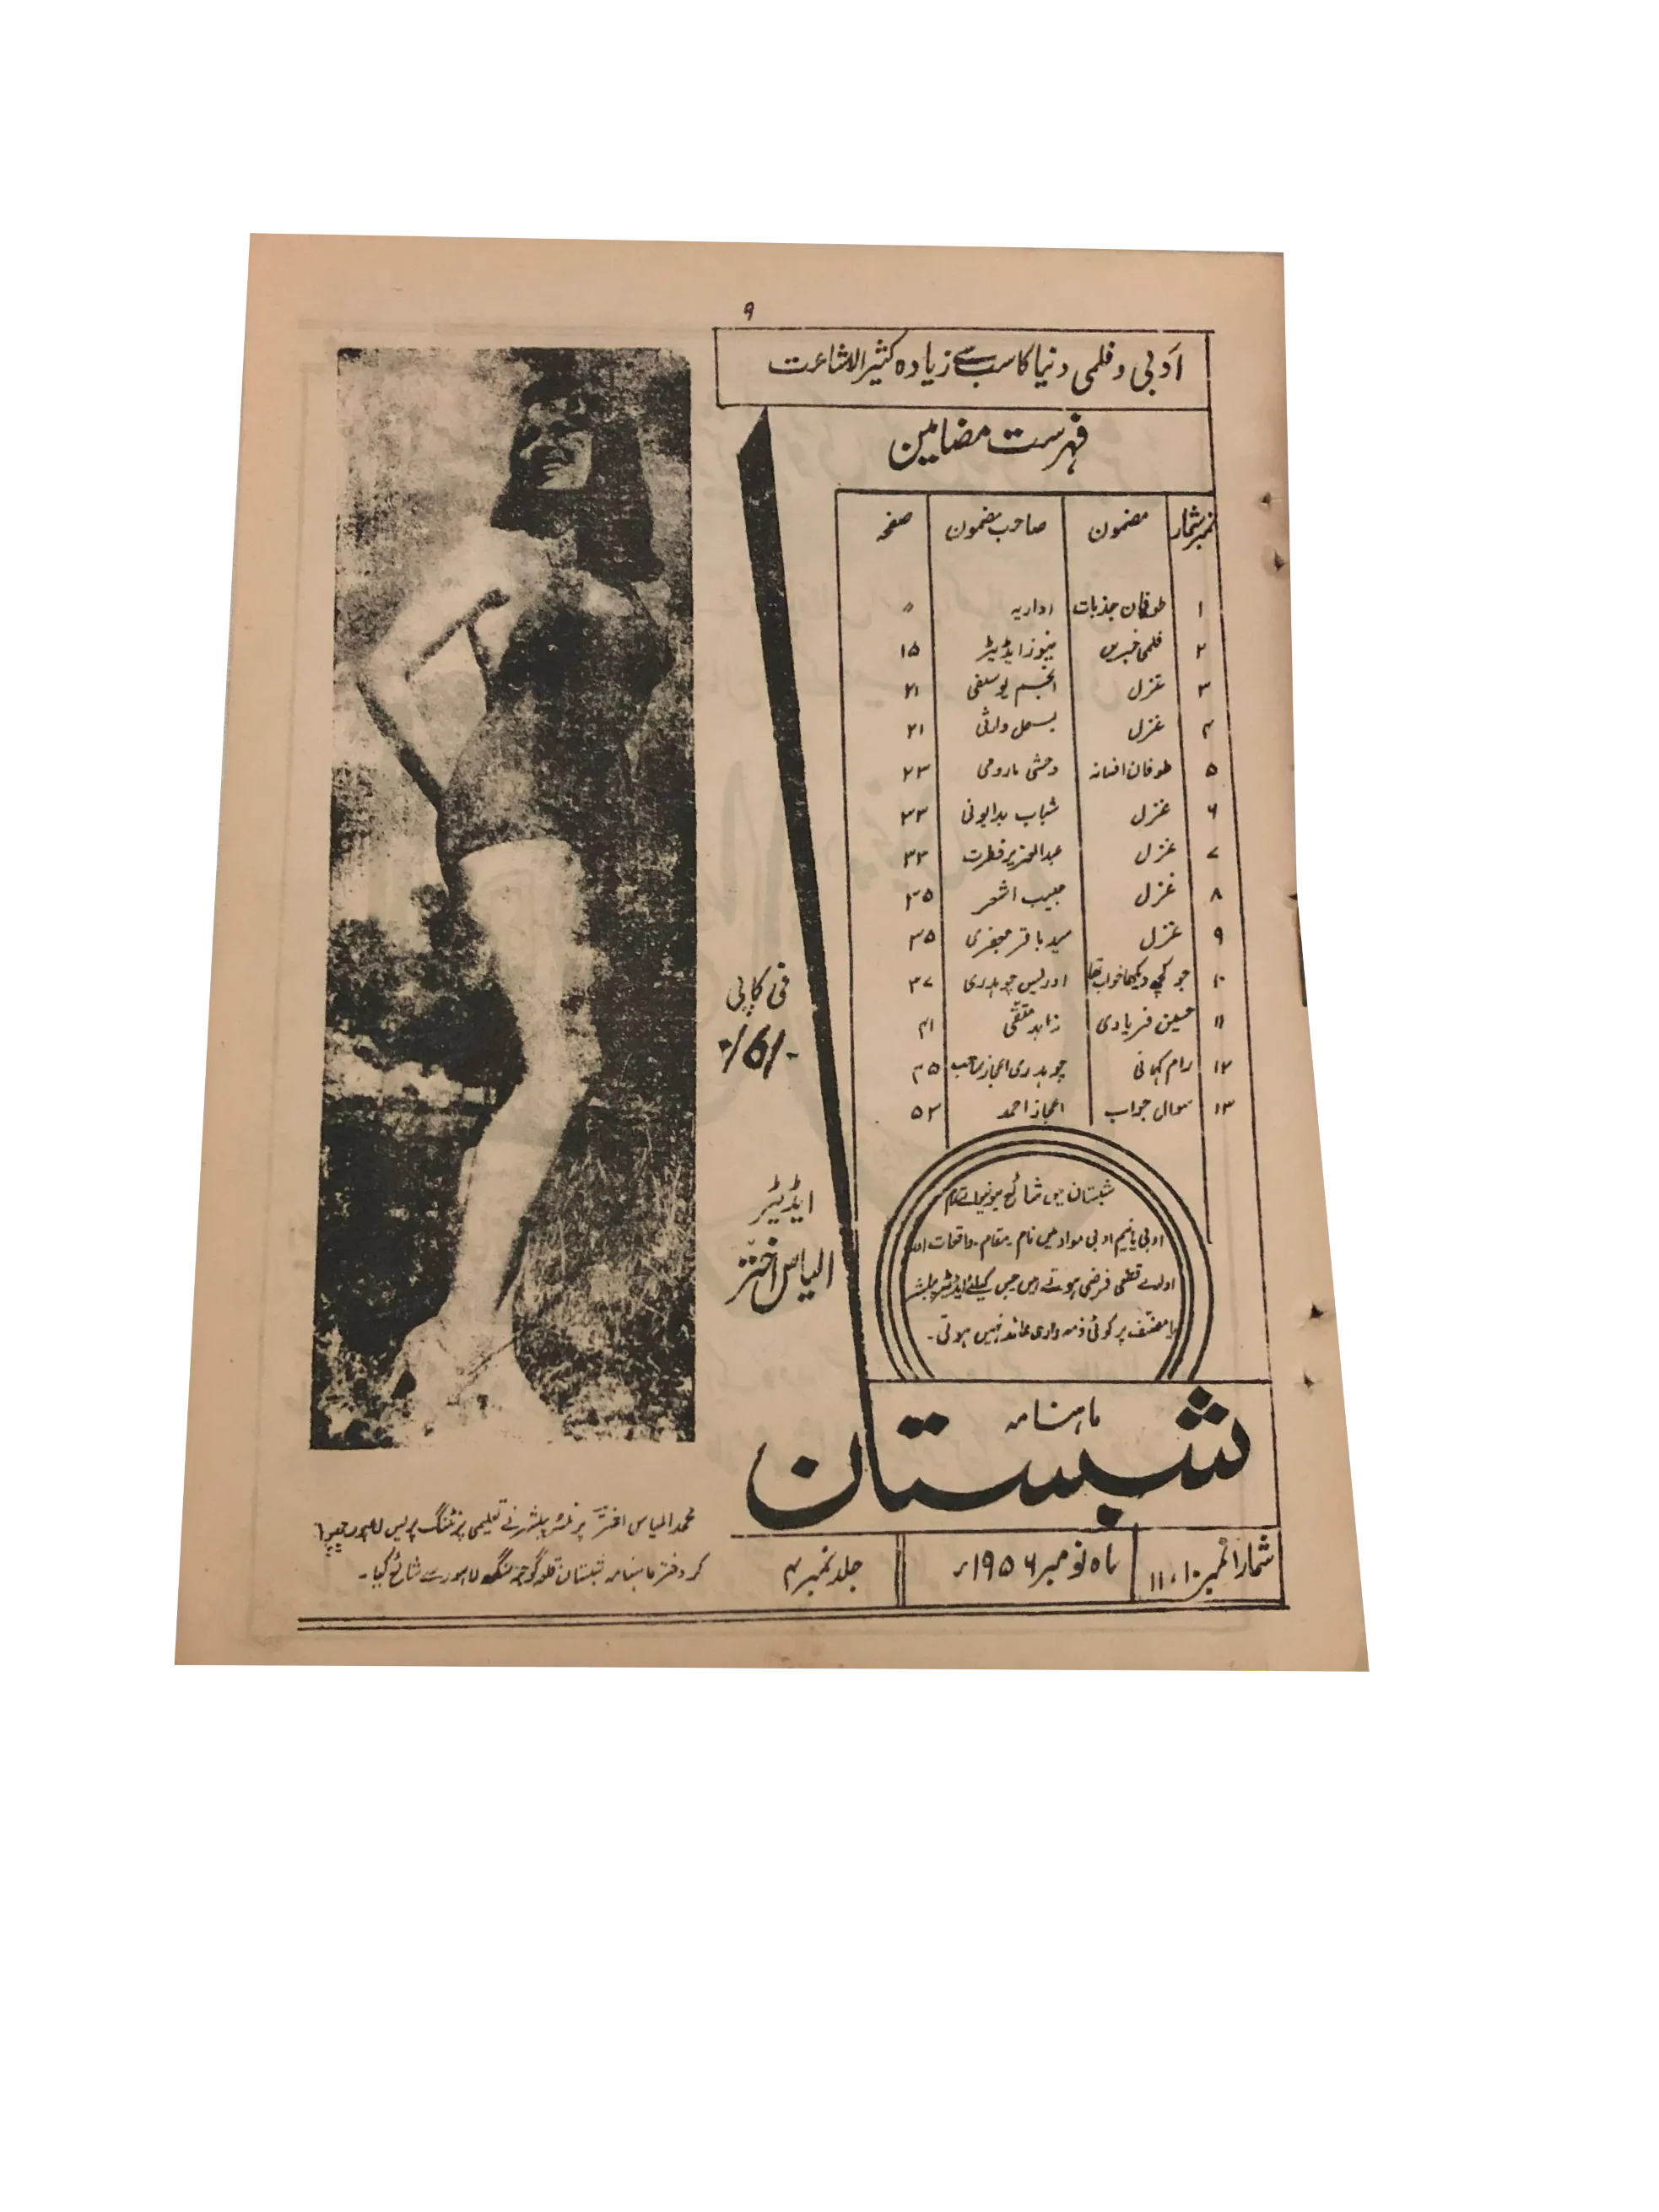 ۹
ادبی و فلمی دنیا کا سب سے زیادہ کثیر الاشاعت
فہرست مضامین
نمبر شمار مضمون صاحب مضمون صفحہ
۱ طوفان جذبات اداریہ
۲ فلمی خبریں نیوز ایڈیٹر ۱۵
۳ غزل انجم یوسفی ۲۱
۴ غزل بسمل وارثی ۲۱
۵ طوفان افسانہ وحشی مارہروی ۲۳
۶ غزل شباب بدایونی ۳۳
۷ غزل عبدالعزیز فطرت ۳۳
۸ غزل حبیب اشعر ۳۵
۹ غزل سید باقر جعفری ۳۵
۱۰ جو کچھ دیکھا خواب تھا ادریس چوہدری ۳۷
۱۱ حسین فریادی زاہد متقی ۴۱
۱۲ رام کہانی چوہدری اعجاز صاحب ۴۵
۱۳ سوال جواب اعجاز احمد ۵۳
فی کاپی
-/6/-
ایڈیٹر
الیاس اختر
شبستان میں شائع ہونیوالے تمام
ادبی یا نیم ادبی مواد میں نام۔ مقام۔ واقعات اور
ادارے قطعی فرضی ہوتے ہیں جس کیلئے ایڈیٹر پبلشر
یا مصنف پر کوئی ذمہ داری عائد نہیں ہوتی۔
ماہنامہ
شبستان
شمارا نمبر ۱۰، ۱۱ ماہ نومبر ۱۹۵۶ء جلد نمبر ۴
محمد الیاس اختر پرنٹر پبلشر نے تعلیمی پرنٹنگ پریس لاہور میں چھپوا
کر دفتر ماہنامہ شبستان قلعہ گوجر سنگھ لاہور سے شائع کیا۔